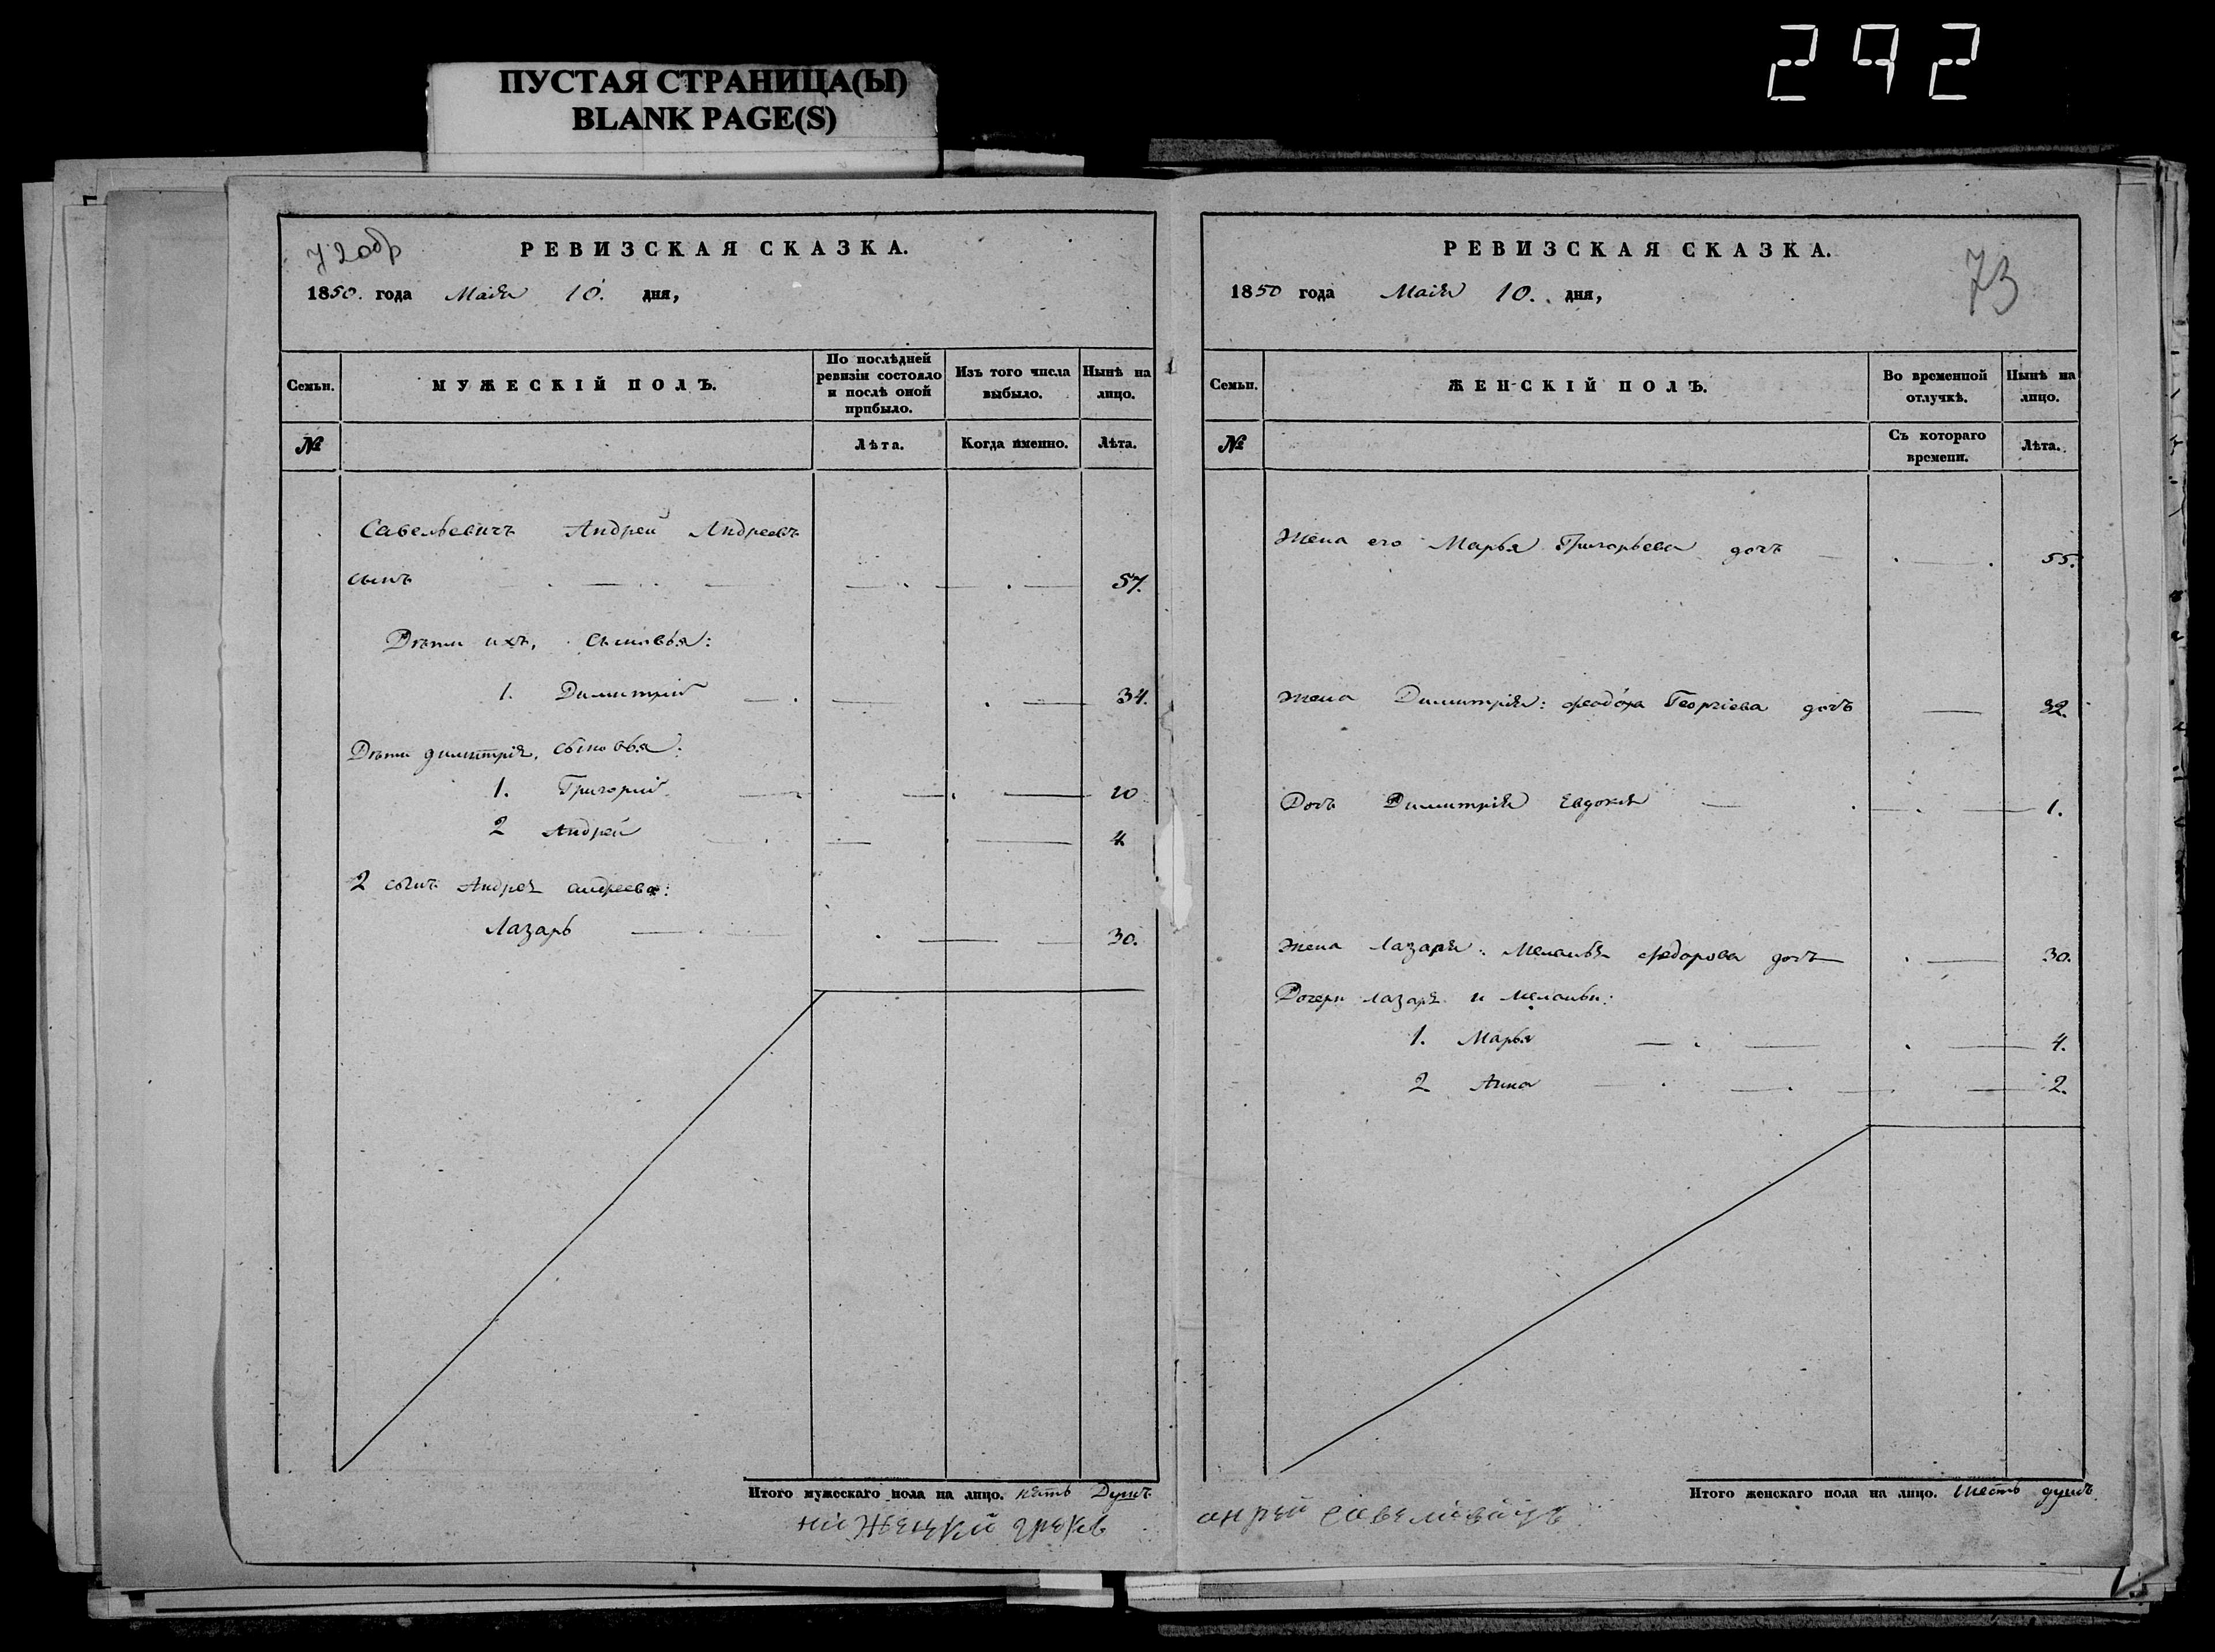 ПУСТАЯ СТРАНИЦА(Ы)
BLANK PAGE(S)
292
72 обр
РЕВИЗСКАЯ СКАЗКА.
1850. года Маія 10. дня,
Семьи.
МУЖЕСКІЙ ПОЛЪ.
По послѣдней ревизіи состояло и послѣ оной прибыло.
Изъ того числа выбыло.
Нынѣ на лицо.
№
Лѣта.
Когда именно.
Лѣта.
Савельевичъ Андрей Андреевъ
сынъ 57.
Дѣти ихъ, сыновья:
1. Димитрій 34.
Дѣти димитрія, сыновья:
1. Григорій 10
2 Андрей 4
2 сынъ Андрея андреева:
Лазарь 30.
Итого мужескаго пола на лицо. пять Душъ
ниженский грекъ
РЕВИЗСКАЯ СКАЗКА.
73
1850 года Маія 10. дня,
Семьи.
ЖЕНСКІЙ ПОЛЪ.
Во временной отлучкѣ.
Нынѣ на лицо.
№
Съ котораго времени.
Лѣта.
Жена его Марья Григорьева дочь 55.
Жена Димитрія: Георгіева дочь 32.
Дочь Димитрія Евдокія 1.
Жена Лазаря: Меланья Федорова дочь 30.
Дочери лазаря и меланьи:
1. Марья 4.
2 Анна 2.
Итого женскаго пола на лицо. шесть душъ
анрей савелиевичъ